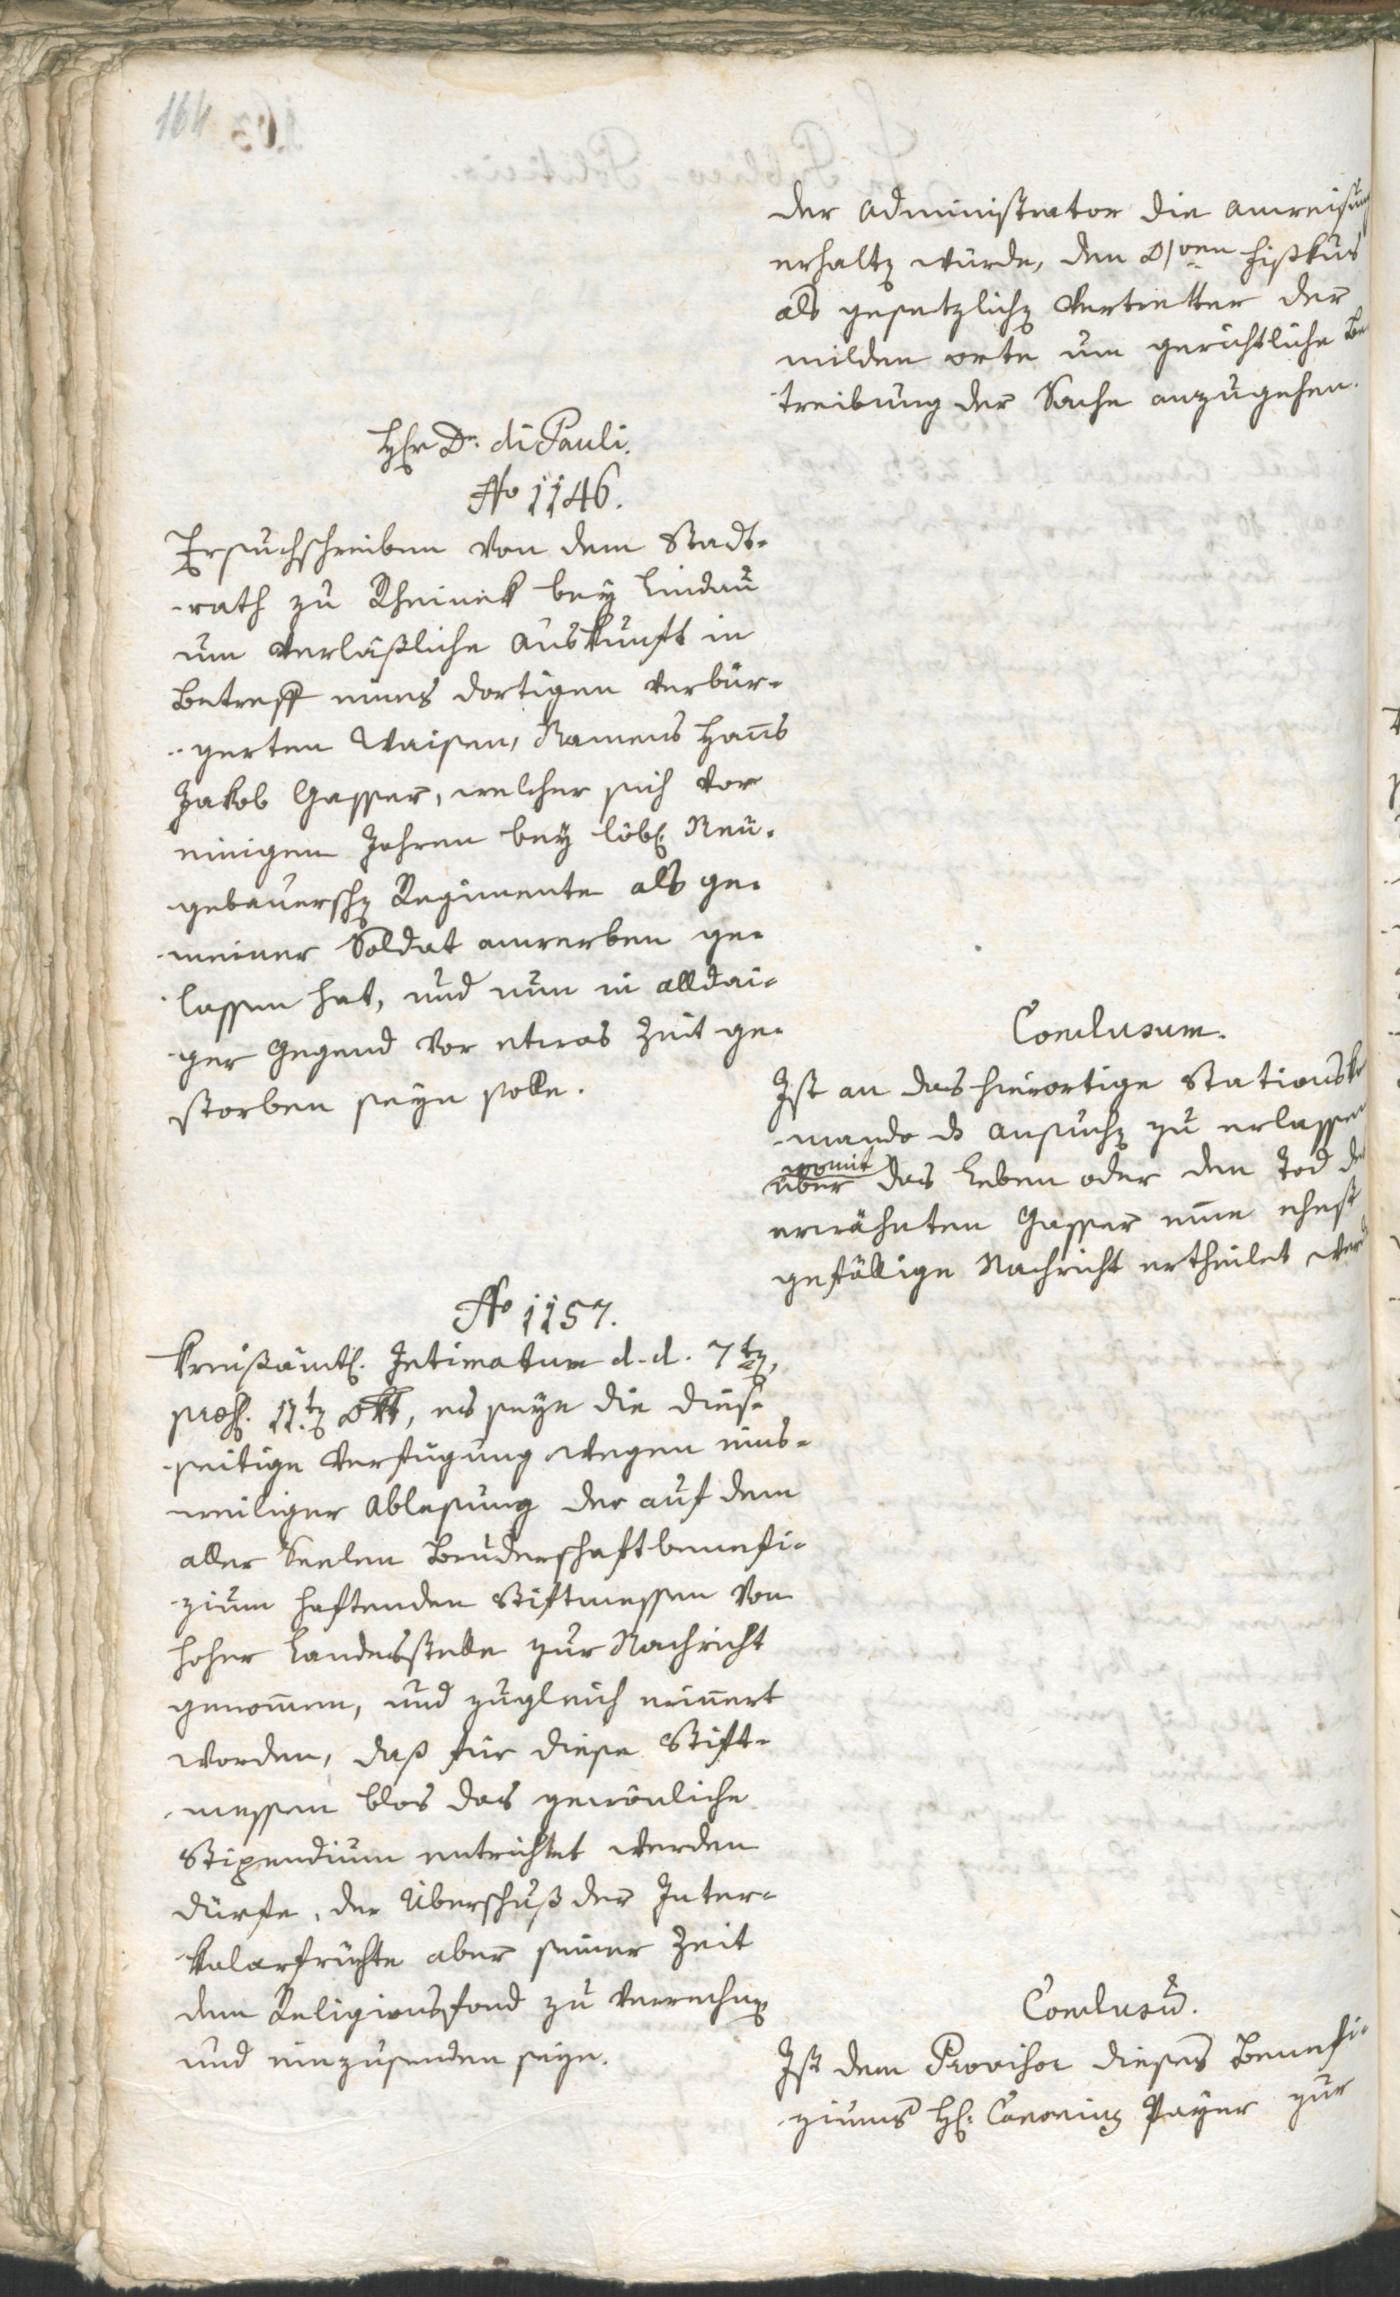 164
der Administrator die Anweisung
erhaltē würde, den
als gesetzlichē Vertretter der
milden orte um gerichtliche Be
treibung der Sache anzugehen.
Hr Dr. di Pauli.
No 1146.
Ersuchschreiben von dem Stadt-
rath zu Rheinek bey Lindau
um verläßliche Auskunft in
Betreff eines dortigen verbür-
gerten Waisen, Namens Hanns
Jakob Gasser, welcher sich vor
einigen Jahren bey löbl. Neu-
gebauerschē Regimente als ge-
meiner Soldat anwerben ge-
lassen hat, und nun in alldai-
ger Gegend vor etwas Zeit ge-
storben seyn solle.
Conclusum.
Ist an das hierortige Stationsko
mando ds Ansuchē zu erlassen
womit
über das Leben oder den Tod des
erwähnten Gasser eine ehest
gefällige Nachricht ertheilet werd
No 1157.
Kreißämtl. Intimatum d. d. 7tē,
præs. 11.tē Okt, es seye die dies-
seitige Verfügung wegen eins-
weiliger Ablesung der auf dem
aller Seelen Bruderschaftbenefi-
zium haftenden Stiftmessen von
hoher Landesstelle zur Nachricht
genommen, und zugleich erinnert
worden, daß für diese Stift-
messen blos das gewönliche
Stipendium entrichtet werden
dürfe, der Überschuß der Inter-
kalarfrüchte aber seiner Zeit
dem Religionsfond zu verrechnē
und einzusenden seye.
Conclusū.
Ist dem Provisor dieses Benefi-
ziums H. Canonicus Payer zur